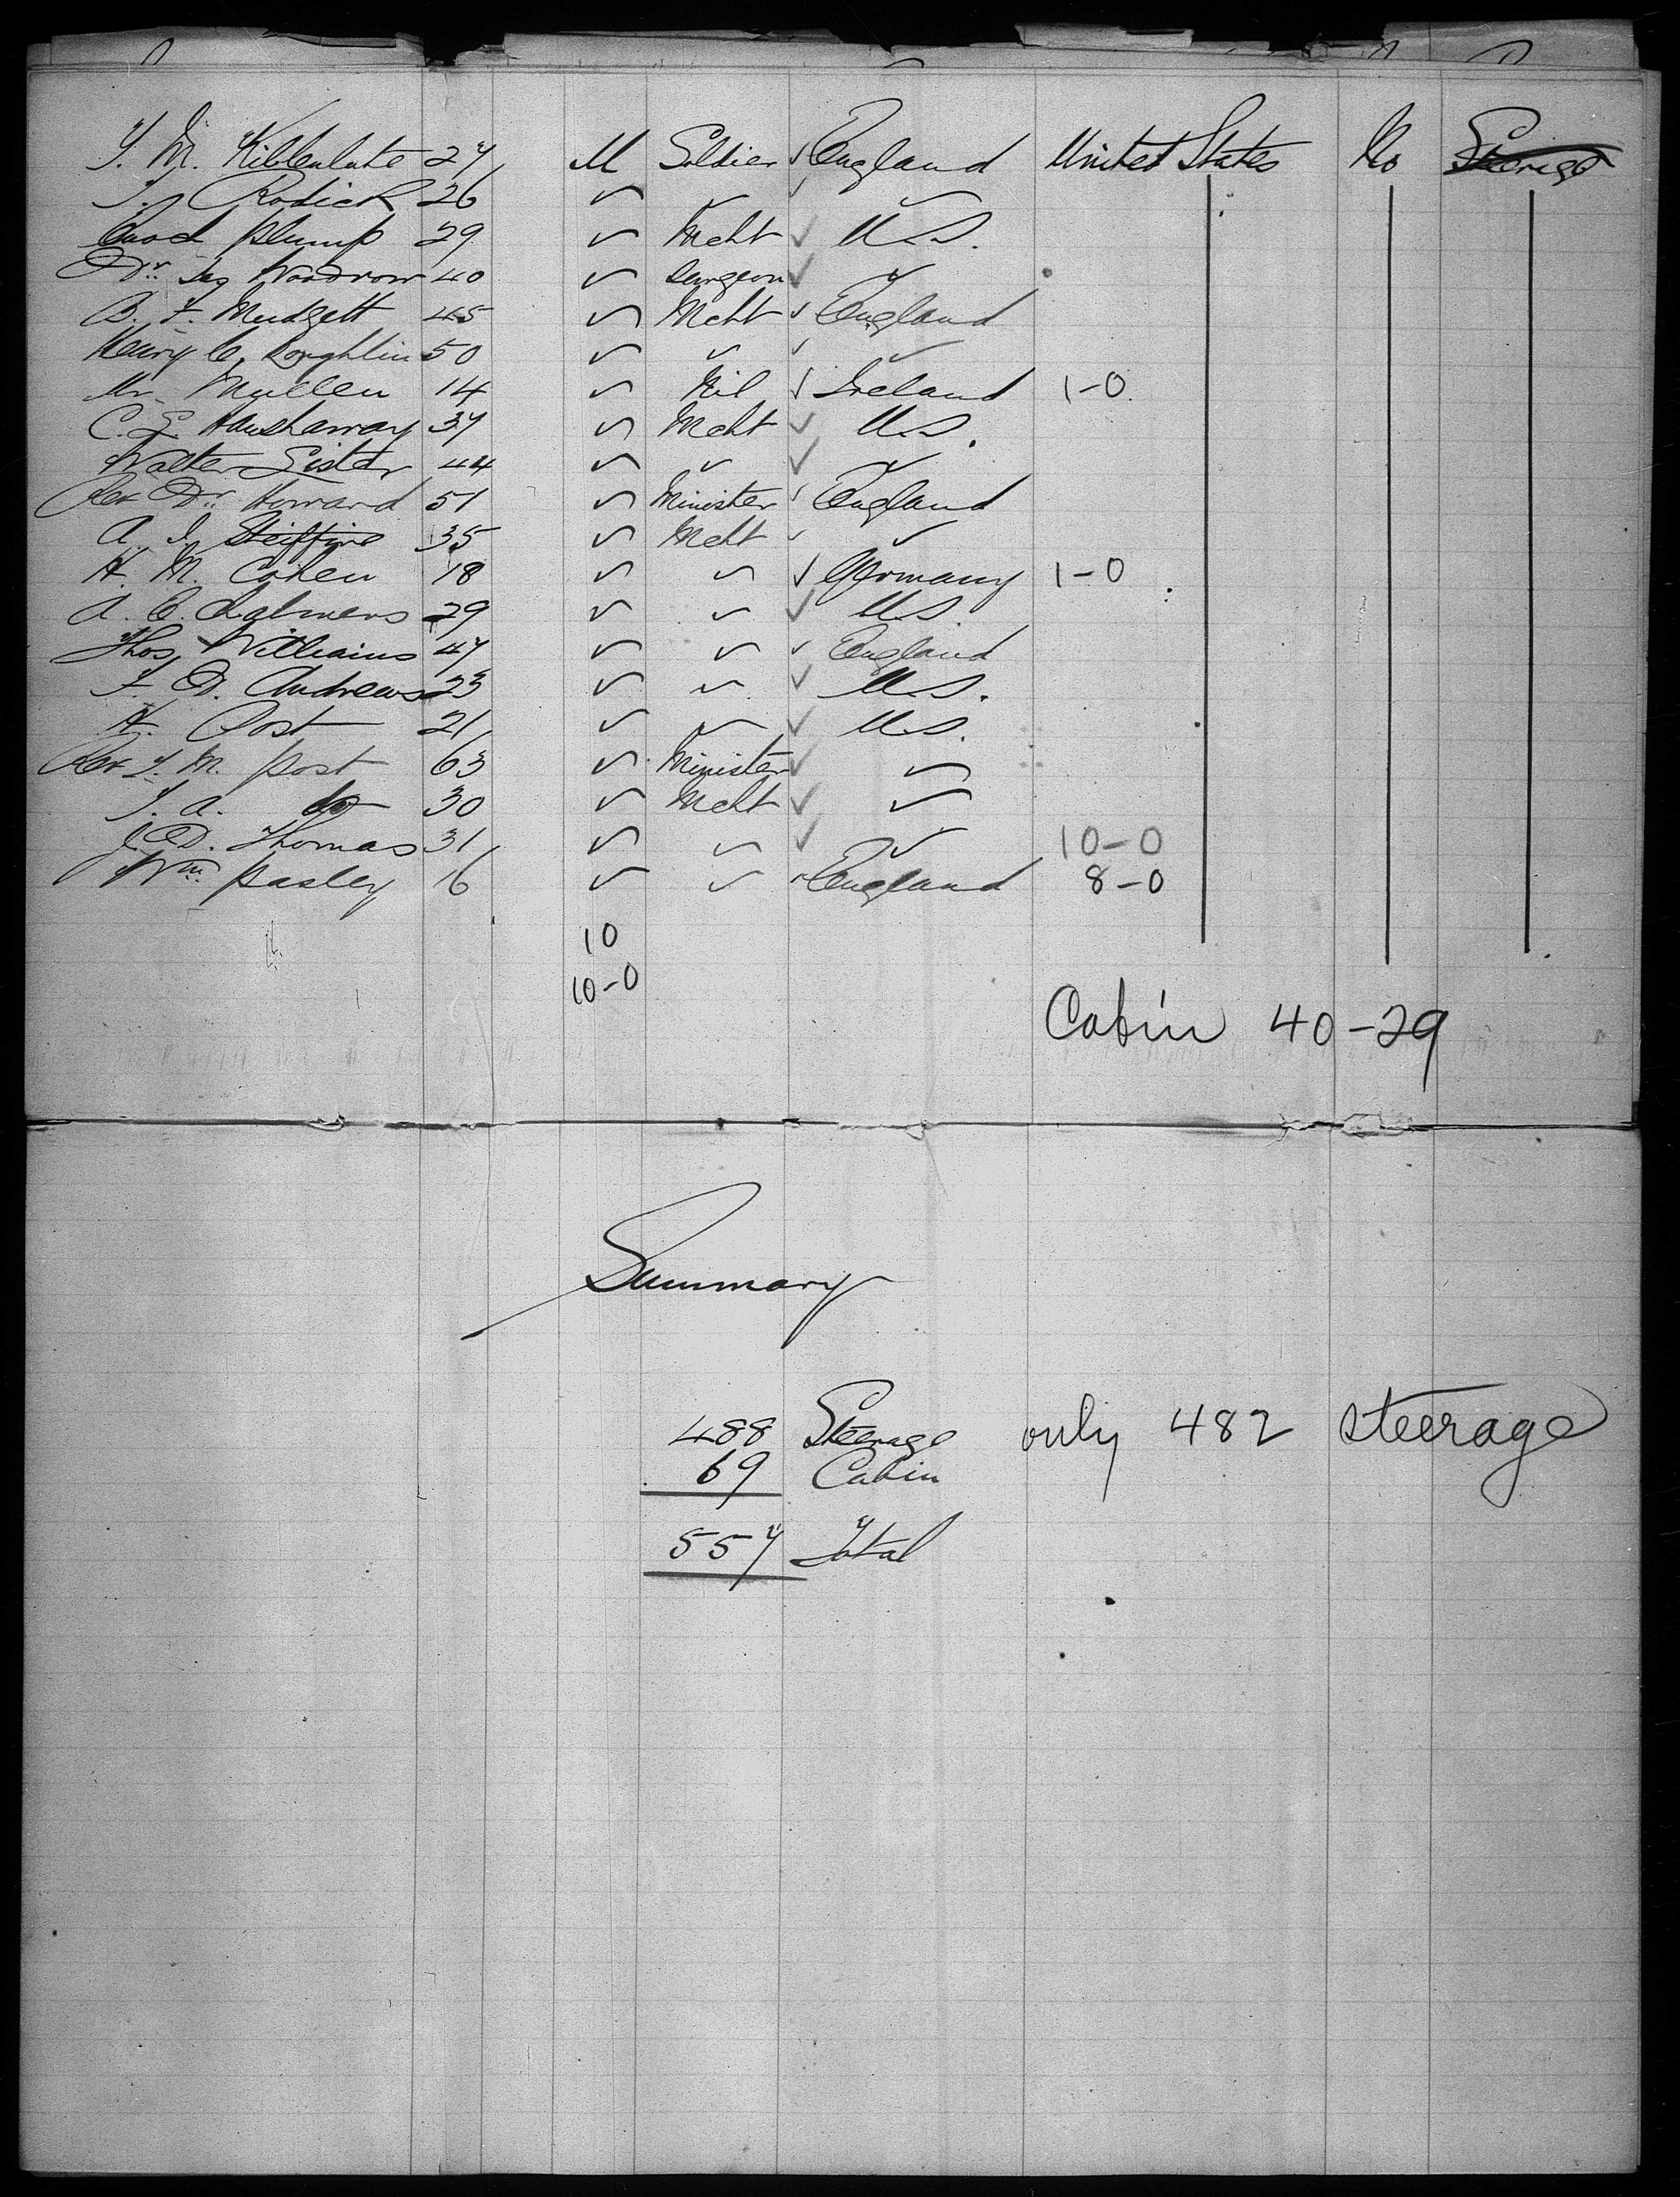 T. M. Kibbenlute 27 M Soldier ✓ England United States No Steerage
T. Rodick 26 ✓ ✓ ✓ ✓
Enod Plump 29 ✓ Mcht ✓ U.S.
Dr. Jas Woodrow 40 ✓ Surgeon ✓ ✓
B. F. Mudgett 45 ✓ Mcht ✓ England
Henry C. Loughlin 50 ✓ ✓ ✓ ✓
Mr. Mullen 14 ✓ Nil ✓ Ireland 1-0
C. E. Hanshaway 37 ✓ Mcht ✓ U.S.
Walter Lister 44 ✓ ✓ ✓ ✓
Rev Dr. Howard 51 ✓ Minister ✓ England
A. I. 35 ✓ Mcht ✓ ✓
H. M. Cohen 18 ✓ ✓ ✓ Germany 1-0
A. C. Chalmers 29 ✓ ✓ ✓ U.S.
Thos Williams 47 ✓ ✓ ✓ England
F. D. Andrews 23 ✓ ✓ ✓ U.S.
H. Post 21 ✓ ✓ ✓ U.S.
Rev T. M. Post 63 ✓ Minister ✓ ✓
T. A. do 30 ✓ Mcht ✓ ✓
J. D. Thomas 31 ✓ ✓ ✓ ✓ 10-0
Wm. Pasley 16 ✓ ✓ ✓ England 8-0
10
10-0
Cabin 40-29
Summary
488 Steerage only 482 steerage
69 Cabin
557 Total